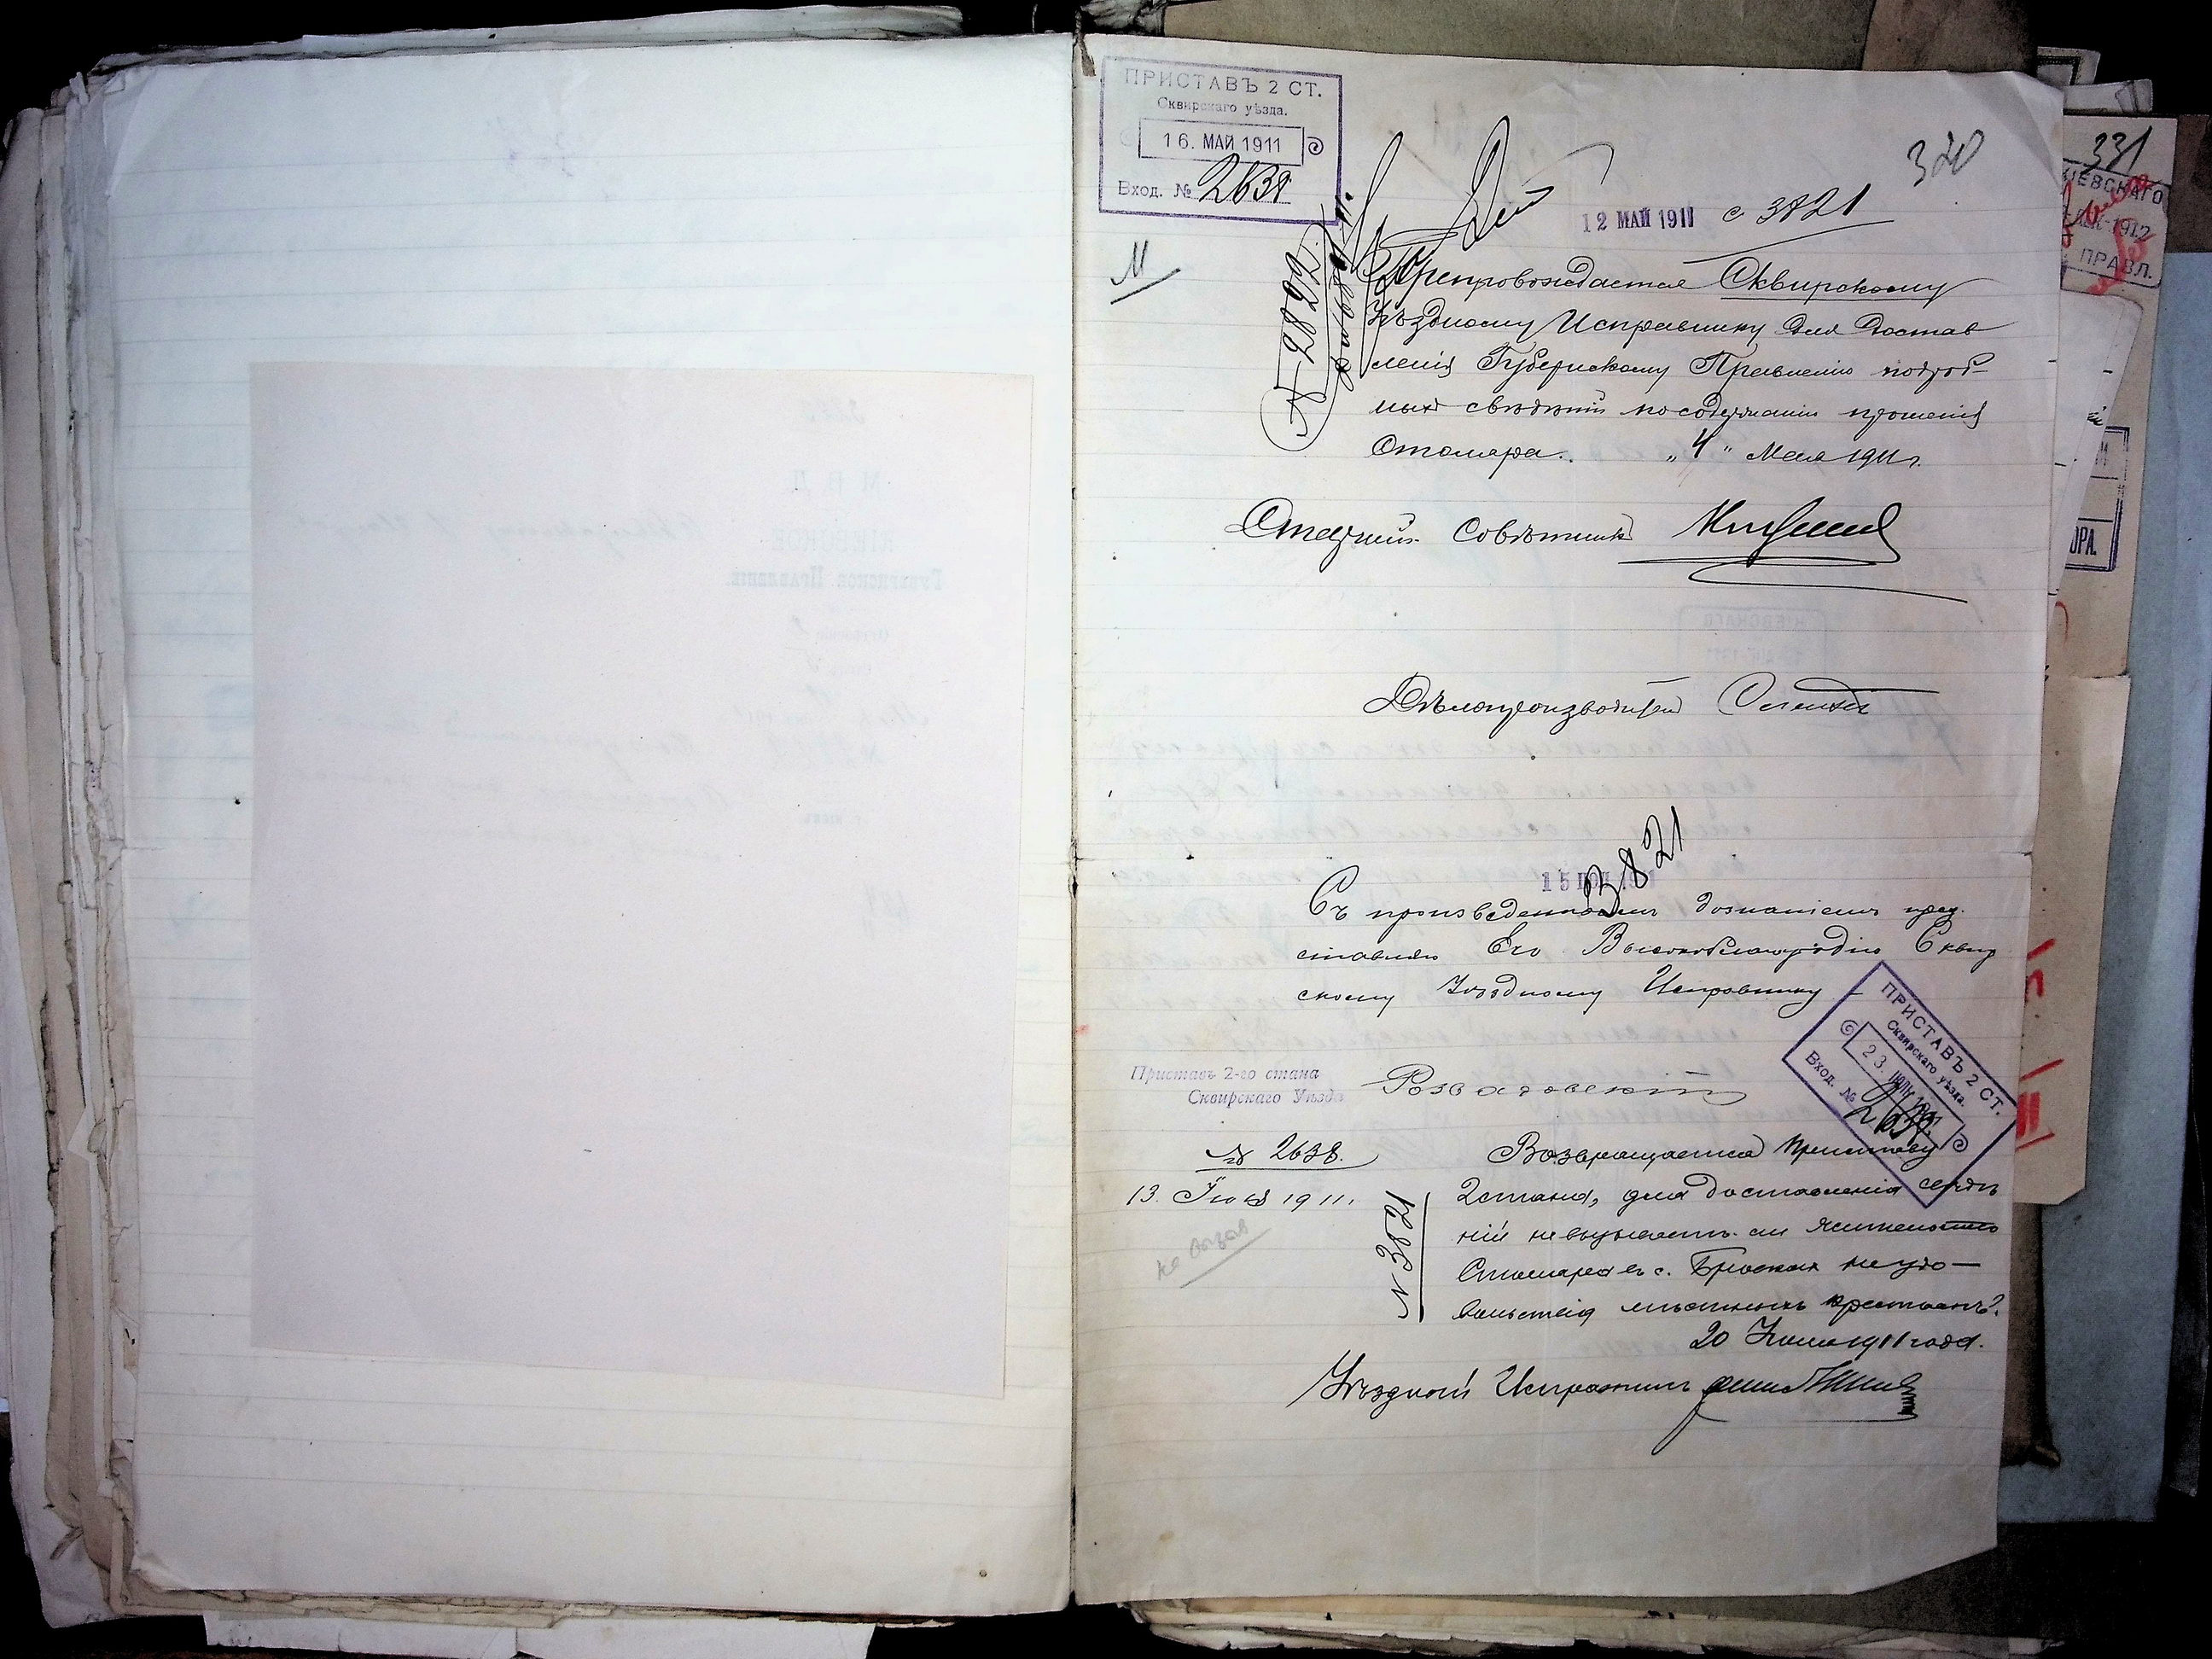 ПРИСТАВЪ 2 СТ.
Сквирскаго уѣзда.
16. МАЙ 1911
Вход. № 2638
320
12 МАЙ 1911 с 3821
331
Препровождается Сквирскому
Уѣздному Исправнику для достав
ленія Губернскому Правленію подроб-
ныхъ свѣдѣній по содержанію прошенія
Столяра. „4" Мая 1911 г.
Старшій Совѣтникъ
Дѣлопроизводитель
3821
Съ произведеннымъ дознаніемъ пред-
ставляю Его Высокоблагородію Сквир
скому Уѣздному Исправнику
ПРИСТАВЪ 2 СТ.
Сквирскаго уѣзда.
23.
Вход. № 2638
Приставъ 2-го стана
Сквирскаго Уѣзда
№ 2638.
13. Іюня 1911.
№ 3821
Возвращается Приставу
2 стана, для доставленія свѣдѣ
ній не вызываетъ ли жительство
Столяра въ с. неудо-
вольствія мѣстныхъ крестьянъ?
20 1911 года.
Уѣздный Исправникъ